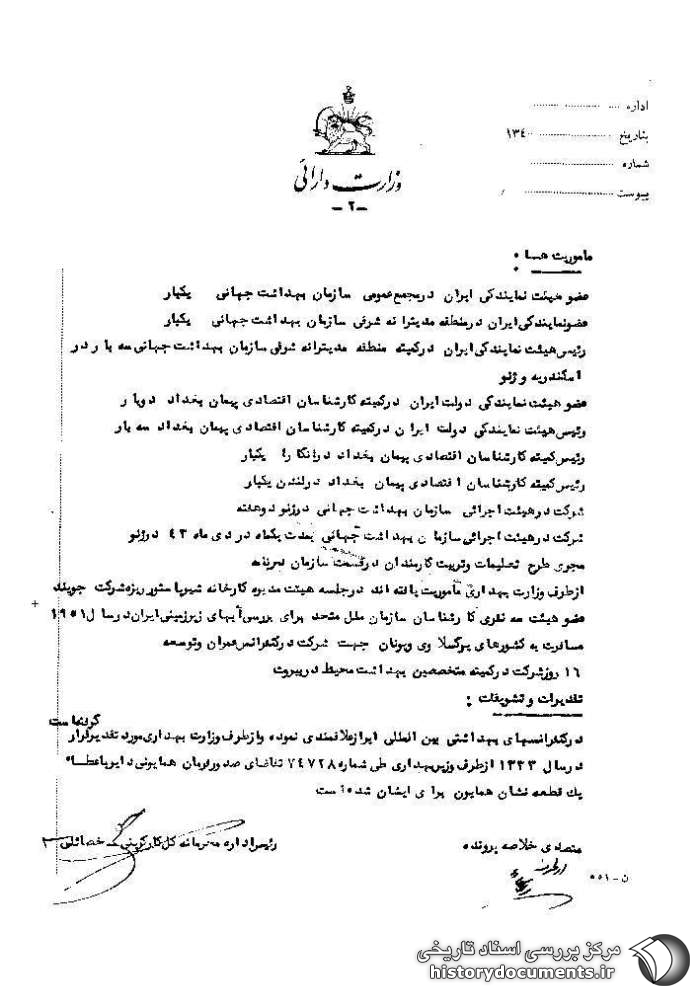 اداره
بتاریخ ۱۳۴
شماره
پیوست
وزارت دارائی
-۲-
ماموریت هـا :
عضو هیئت نمایندگی ایران درمجمع عمومی سازمان بهداشت جهانی یکبار
عضونمایندگی ایران درمنطقه مدیترانه شرقی سازمان بهداشت جهانی یکبار
رئیس هیئت نمایندگی ایران درکمیته منطقه مدیترانه شرقی سازمان بهداشت جهانی سه بار در
اسکندریه و ژنو
عضو هیئت نمایندگی دولت ایران درکمیته کارشناسان اقتصادی پیمان بغداد دوبار
رئیس هیئت نمایندگی دولت ایران درکمیته کارشناسان اقتصادی پیمان بغداد سه بار
رئیس کمیته کارشناسان اقتصادی پیمان بغداد درآنکارا یکبار
رئیس کمیته کارشناسان اقتصادی پیمان بغداد درلندن یکبار
شرکت درهیئت اجرائی سازمان بهداشت جهانی درژنو دوهفته
شرکت درهیئت اجرائی سازمان بهداشت جهانی بمدت یکماه در دی ماه ۴۳ درژنو
مجری طرح تعلیمات وتربیت کارمندان درقسمت سازمان برنامه
ازطرف وزارت بهداری ماموریت یافته اند درجلسه هیئت مدیره کارخانه شیرپاستوریزه شرکت جویند
عضو هیئت سه نفری کارشناسان سازمان ملل متحد برای بررسی آبهای زیرزمینی ایران درسال ۱۹۵۱
مسافرت به کشورهای یوگسلاوی ویونان جهت شرکت درکنفرانس عمران وتوسعه
۱۶ روزشرکت درکمیته متخصصین بهداشت محیط دربیروت
تقدیرات و تشویقات :
درکنفرانسهای بهداشتی بین المللی ابرازعلاقمندی نموده وازطرف وزارت بهداری مورد تقدیرقرار گرفته است
درسال ۱۳۳۳ ازطرف وزیربهداری طی شماره ۷۴۷۲۸ تقاضای صدورفرمان همایونی دایرباعطاء
یک قطعه نشان همایون برای ایشان شده است
متصدی خلاصه پرونده
رئیس اداره محرمانه کل کارگزینی - خصائلی
ن - ۵۵۱
مرکز بررسی اسناد تاریخی
historydocuments.ir